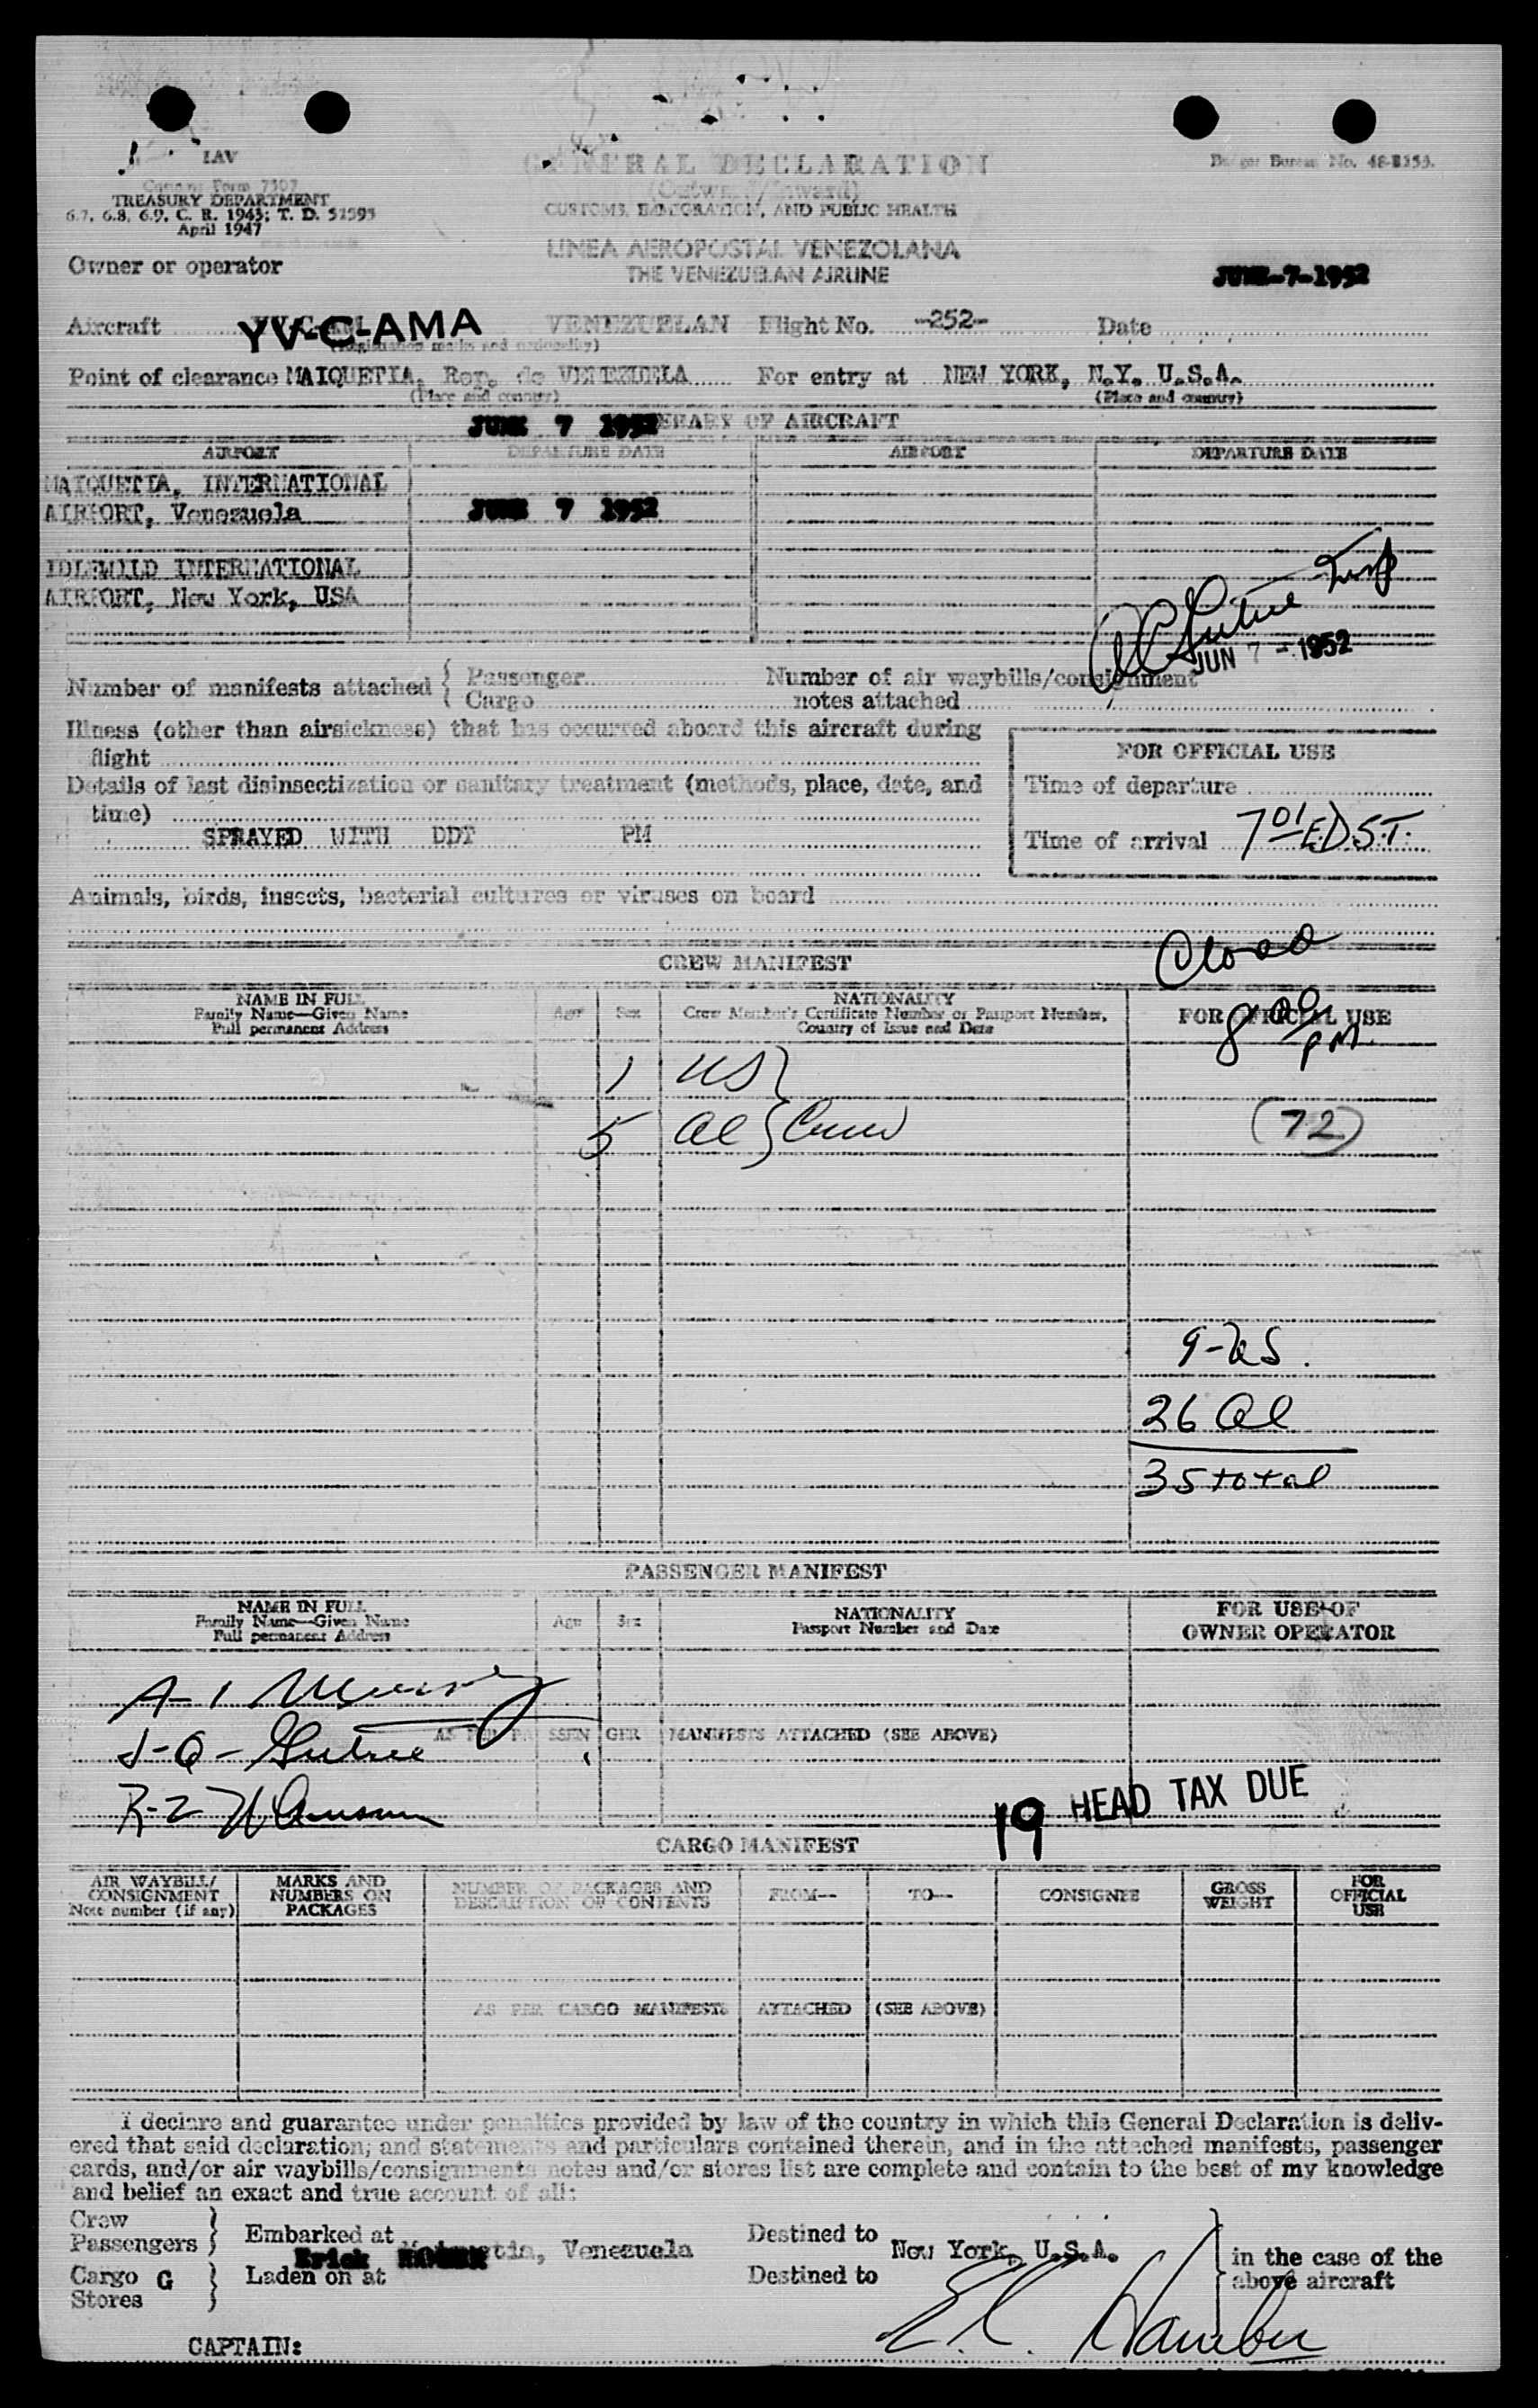 LAV
Customs Form 7507
TREASURY DEPARTMENT
6.7, 6.8, 6.9, C. R. 1943; T. D. 51595
April 1947
GENERAL DECLARATION
(Outward/Inward)
CUSTOMS, IMMIGRATION, AND PUBLIC HEALTH
Budget Bureau No.
LINEA AEROPOSTAL VENEZOLANA
THE VENEZUELAN AIRLINE
Owner or operator
JUNE-7-1952
Aircraft YV-C-AMA VENEZUELAN Flight No. -252- Date
(Registration marks and nationality)
Point of clearance MAIQUETIA, Rep. de VENEZUELA For entry at NEW YORK, N.Y. U.S.A.
(Place and country) (Place and country)
JUNE 7 1952 OF AIRCRAFT
AIRPORT DEPARTURE DATE AIRPORT DEPARTURE DATE
MAIQUETIA, INTERNATIONAL
AIRPORT, Venezuela JUNE 7 1952
IDLEWILD INTERNATIONAL
AIRPORT, New York, USA
JUN 7 - 1952
Number of manifests attached { Passenger Number of air waybills/consignment
Cargo notes attached
Illness (other than airsickness) that has occurred aboard this aircraft during
flight
Details of last disinsectization or sanitary treatment (methods, place, date, and
time)
SPRAYED WITH DDT PM
FOR OFFICIAL USE
Time of departure
Time of arrival 7 01 E.D.S.T.
Animals, birds, insects, bacterial cultures or viruses on board
CREW MANIFEST
NAME IN FULL
Family Name—Given Name
Full permanent Address
Age Sex
NATIONALITY
Crew Member's Certificate Number or Passport Number,
Country of Issue and Date
FOR OFFICIAL USE
8 00 PM
1 US }
5 Al } Crew
(72)
9-US.
26 Al
35 total
PASSENGER MANIFEST
NAME IN FULL
Family Name—Given Name
Full permanent Address
Age Sex
NATIONALITY
Passport Number and Date
FOR USE OF
OWNER OPERATOR
A-1
AS PER PASSENGER MANIFESTS ATTACHED (SEE ABOVE)
R-2
19 HEAD TAX DUE
CARGO MANIFEST
AIR WAYBILL/
CONSIGNMENT
Note number (if any)
MARKS AND
NUMBERS ON
PACKAGES
NUMBER OF PACKAGES AND
DESCRIPTION OF CONTENTS
FROM— TO— CONSIGNEE
GROSS
WEIGHT
FOR
OFFICIAL
USE
AS PER CARGO MANIFESTS ATTACHED (SEE ABOVE)
I declare and guarantee under penalties provided by law of the country in which this General Declaration is deliv-
ered that said declaration; and statements and particulars contained therein, and in the attached manifests, passenger
cards, and/or air waybills/consignments notes and/or stores list are complete and contain to the best of my knowledge
and belief an exact and true account of all:
Crew
Passengers } Embarked at Venezuela Destined to New York, U.S.A.
Cargo G } Laden on at Destined to
Stores
in the case of the
above aircraft
CAPTAIN: